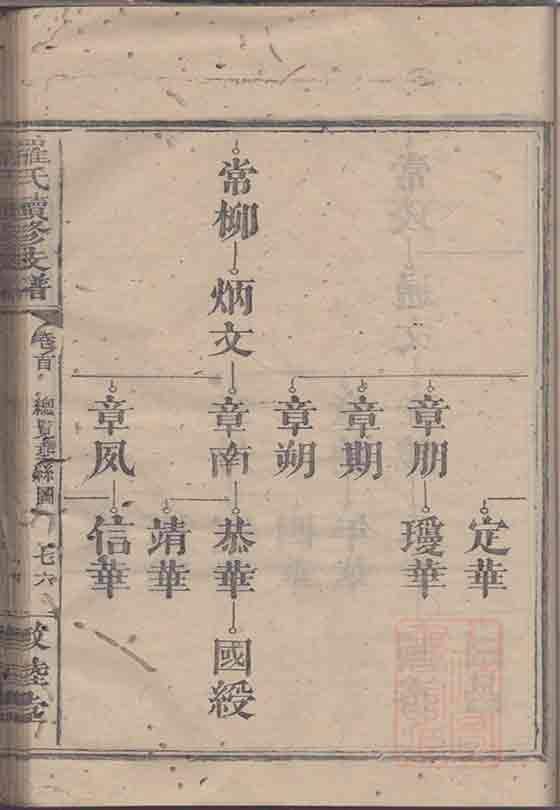 定華
章朋
瓊華
章期
章朔
常柳
炳文
章南
恭華
國綬
靖華
章風
信華
羅氏續修支譜
卷首
總
系圖
七六
敦陸堂